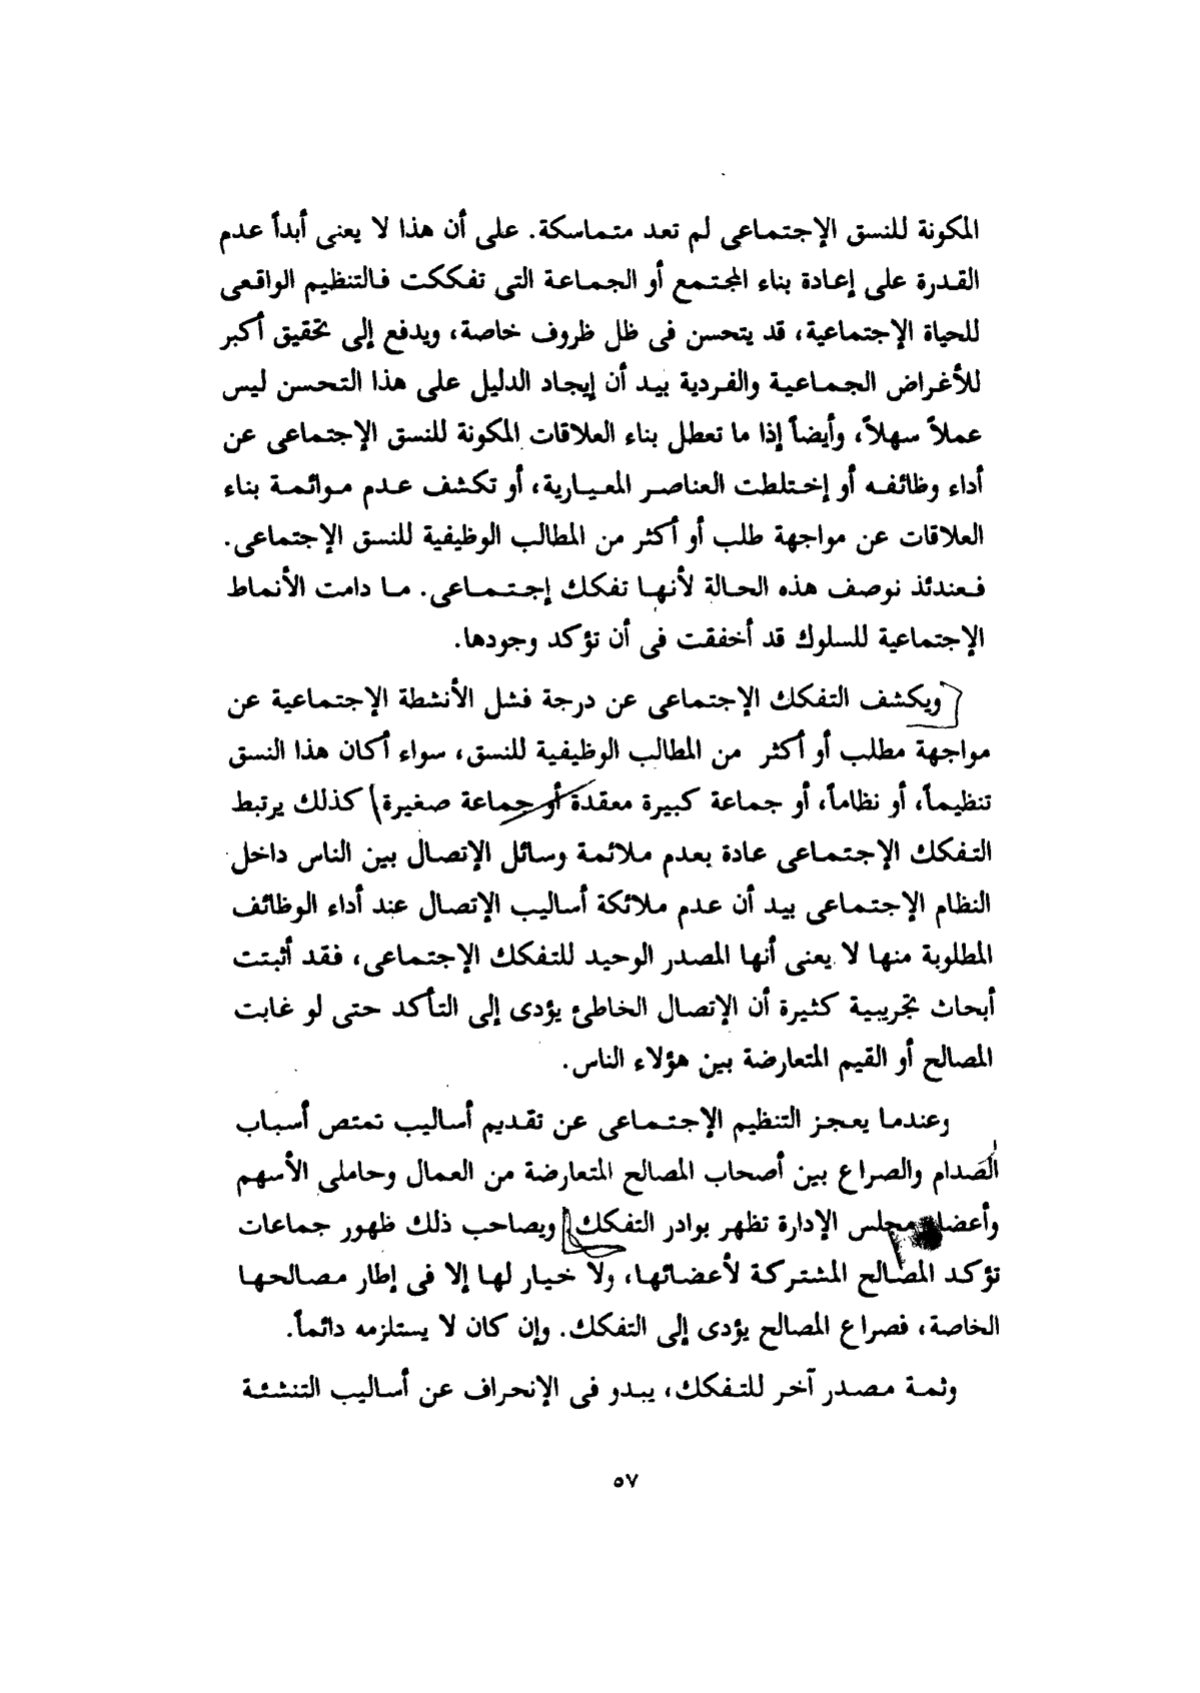 المكونة للنسق الإجتماعى لم تعد متماسكة. على أن هذا لا يعنى أبداً عدم
القدرة على إعادة بناء المجتمع أو الجماعة التى تفككت فالتنظيم الواقعى
للحياة الإجتماعية، قد يتحسن فى ظل ظروف خاصة، ويدفع إلى تحقيق أكبر
للأغراض الجماعية والفردية بيد أن إيجاد الدليل على هذا التحسن ليس
عملاً سهلاً، وأيضاً إذا ما تعطل بناء العلاقات المكونة للنسق الإجتماعى عن
أداء وظائفه أو إختلطت العناصر المعيارية، أو تكشف عدم موائمة بناء
العلاقات عن مواجهة طلب أو أكثر من المطالب الوظيفية للنسق الإجتماعى.
فعندئذ نوصف هذه الحالة لأنها تفكك إجتماعى. ما دامت الأنماط
الإجتماعية للسلوك قد أخفقت فى أن تؤكد وجودها.
ويكشف التفكك الإجتماعى عن درجة فشل الأنشطة الإجتماعية عن
مواجهة مطلب أو أكثر من المطالب الوظيفية للنسق، سواء أكان هذا النسق
تنظيماً، أو نظاماً، أو جماعة كبيرة معقدة أو جماعة صغيرة كذلك يرتبط
التفكك الإجتماعى عادة بعدم ملائمة وسائل الإتصال بين الناس داخل
النظام الإجتماعى بيد أن عدم ملائكة أساليب الإتصال عند أداء الوظائف
المطلوبة منها لا يعنى أنها المصدر الوحيد للتفكك الإجتماعى، فقد أثبتت
أبحاث تجريبية كثيرة أن الإتصال الخاطئ يؤدى إلى التأكد حتى لو غابت
المصالح أو القيم المتعارضة بين هؤلاء الناس.
وعندما يعجز التنظيم الإجتماعى عن تقديم أساليب تمتص أسباب
الصدام والصراع بين أصحاب المصالح المتعارضة من العمال وحاملى الأسهم
وأعضاء مجلس الإدارة تظهر بوادر التفكك ويصاحب ذلك ظهور جماعات
تؤكد المصالح المشتركة لأعضائها، ولا خيار لها إلا فى إطار مصالحها
الخاصة، فصراع المصالح يؤدى إلى التفكك. وإن كان لا يستلزمه دائماً.
وثمة مصدر آخر للتفكك، يبدو فى الإنحراف عن أساليب التنشئة
٥٧